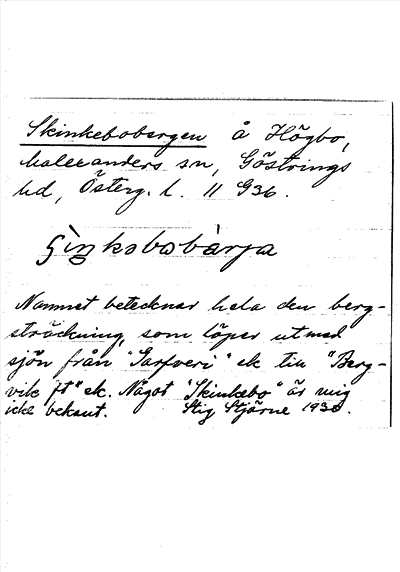 Skinkebobergen å Högbo,
Malexanders sn, Göstrings
hd, Österg. l. II 936.
ʃìŋkəbobærja
Namnet betecknar hela den berg-
sträckning, som löper utmed
sjön från "Garfveri" ek till "Berg-
vik ft" ek. Något "Skinkebo" är mig
icke bekant. Stig Stjärne 1930.